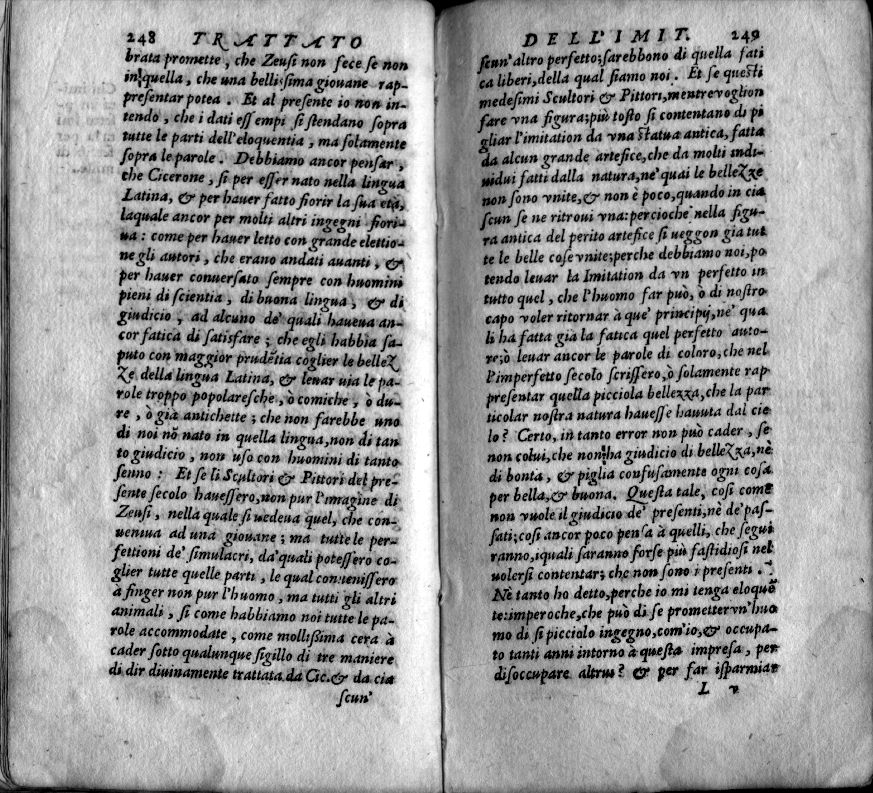 248 TRATTATO
brata promette, che Zeusi non fece se non
in quella, che una bellissima giouane rap-
presentar potea. Et al presente io non in-
tendo, che i dati essempi si stendano sopra
tutte le parti dell'eloquentia, ma solamente
sopra le parole. Debbiamo ancor pensar,
che Cicerone, si per esser nato nella lingua
Latina, & per hauer fatto fiorir la sua età,
laquale ancor per molti altri ingegni fiori-
ua: come per hauer letto con grande elettio-
ne gli autori, che erano andati auanti, &
per hauer conuersato sempre con huomini
pieni di scientia, di buona lingua, & di
giudicio, ad alcuno de' quali haueua an-
cor fatica di satisfare; che egli habbia sa-
puto con maggior prudētia coglier le bellez
ze della lingua Latina, & leuar uia le pa-
role troppo popolaresche, ò comiche, ò du-
re, ò già antichette; che non farebbe uno
di noi nō nato in quella lingua, non di tan
to giudicio, non uso con huomini di tanto
senno: Et se li Scultori & Pittori del pre-
sente secolo hauessero, non pur l'imagine di
Zeusi, nella quale si uedeua quel, che con-
ueniua ad una giouane; ma tutte le per-
fettioni de' simulacri, da' quali potessero co-
glier tutte quelle parti, le qual conuenissero
à finger non pur l'huomo, ma tutti gli altri
animali, si come habbiamo noi tutte le pa-
role accommodate, come mollissima cera à
cader sotto qualunque sigillo di tre maniere
di dir diuinamente trattata da Cic. & da cia
scun'
DELL'IMIT. 249
scun' altro perfetto; sarebbono di quella fati
ca liberi, della qual siamo noi. Et se questi
medesimi Scultori & Pittori, mentre voglion
fare vna figura; più tosto si contentano di pi
gliar l'imitation da vna statua antica, fatta
da alcun grande artefice, che da molti indi-
uidui fatti dalla natura, ne' quai le bellezze
non sono vnite, & non è poco, quando in cia
scun se ne ritroui vna: percioche nella figu-
ra antica del perito artefice si ueggon gia tut
te le belle cose vnite; perche debbiamo noi, po
tendo leuar la Imitation da vn perfetto in
tutto quel, che l'huomo far può, ò di nostro
capo voler ritornar à que' principij, ne' qua
li ha fatta già la fatica quel perfetto auto-
re; ò leuar ancor le parole di coloro, che nel
l'imperfetto secolo scrissero, ò solamente rap
presentar quella picciola bellezza, che la par
ticolar nostra natura hauesse hauuta dal cie
lo? Certo, in tanto error non può cader, se
non colui, che non ha giudicio di bellezza, nè
di bonta, & piglia confusamente ogni cosa
per bella, & buona. Questa tale, cosi come
non vuole il giudicio de' presenti, nè de' pas-
sati; cosi ancor poco pensa à quelli, che segui
ranno, iquali saranno forse più fastidiosi nel
uolersi contentar; che non sono i presenti.
Ne tanto ho detto, perche io mi tenga eloquē
te: imperoche, che può di se prometter vn' huo
mo di si picciolo ingegno, com'io, & occupa-
to tanti anni intorno à questa impresa, per
disoccupare altrui? & per far isparmiar
L v